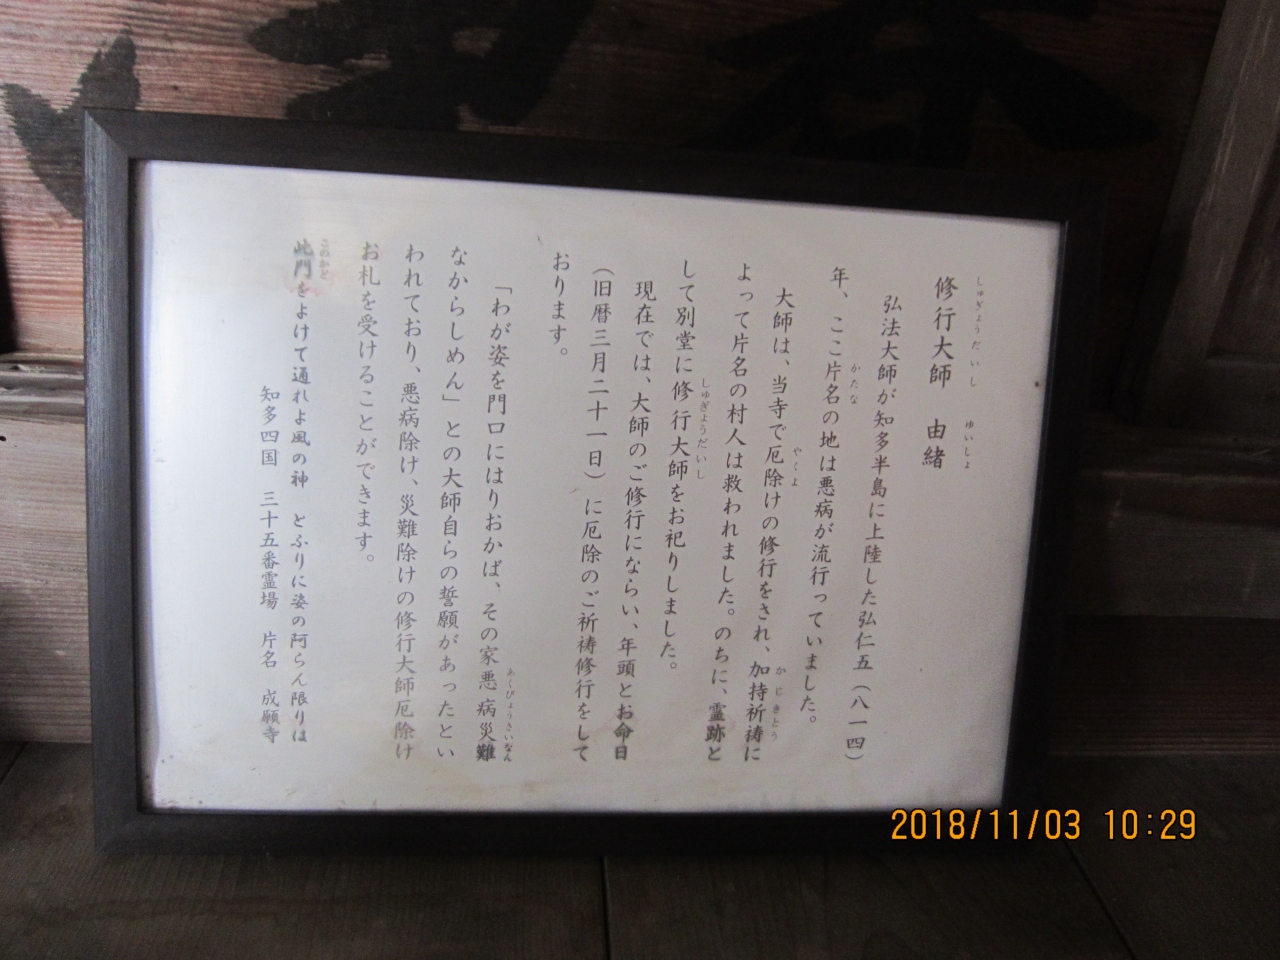 修行大師　由緒
しゅぎょうだいし　ゆいしょ
弘法大師が知多半島に上陸した弘仁五（八一四）
年、ここ片名の地は悪病が流行っていました。
かたな
大師は、当寺で厄除けの修行をされ、加持祈祷に
やくよ　かじきとう
よって片名の村人は救われました。のちに、霊跡と
して別堂に修行大師をお祀りしました。
しゅぎょうだいし
現在では、大師のご修行にならい、年頭とお命日
（旧暦三月二十一日）に厄除のご祈祷修行をして
おります。
「わが姿を門口にはりおかば、その家悪病災難
あくびょうさいなん
なからしめん」との大師自らの誓願があったとい
われており、悪病除け、災難除けの修行大師厄除け
お札を受けることができます。
此門をよけて通れよ風の神　とふりに姿の阿らん限りは
このかど
知多四国　三十五番霊場　片名　成願寺
2018/11/03 10:29